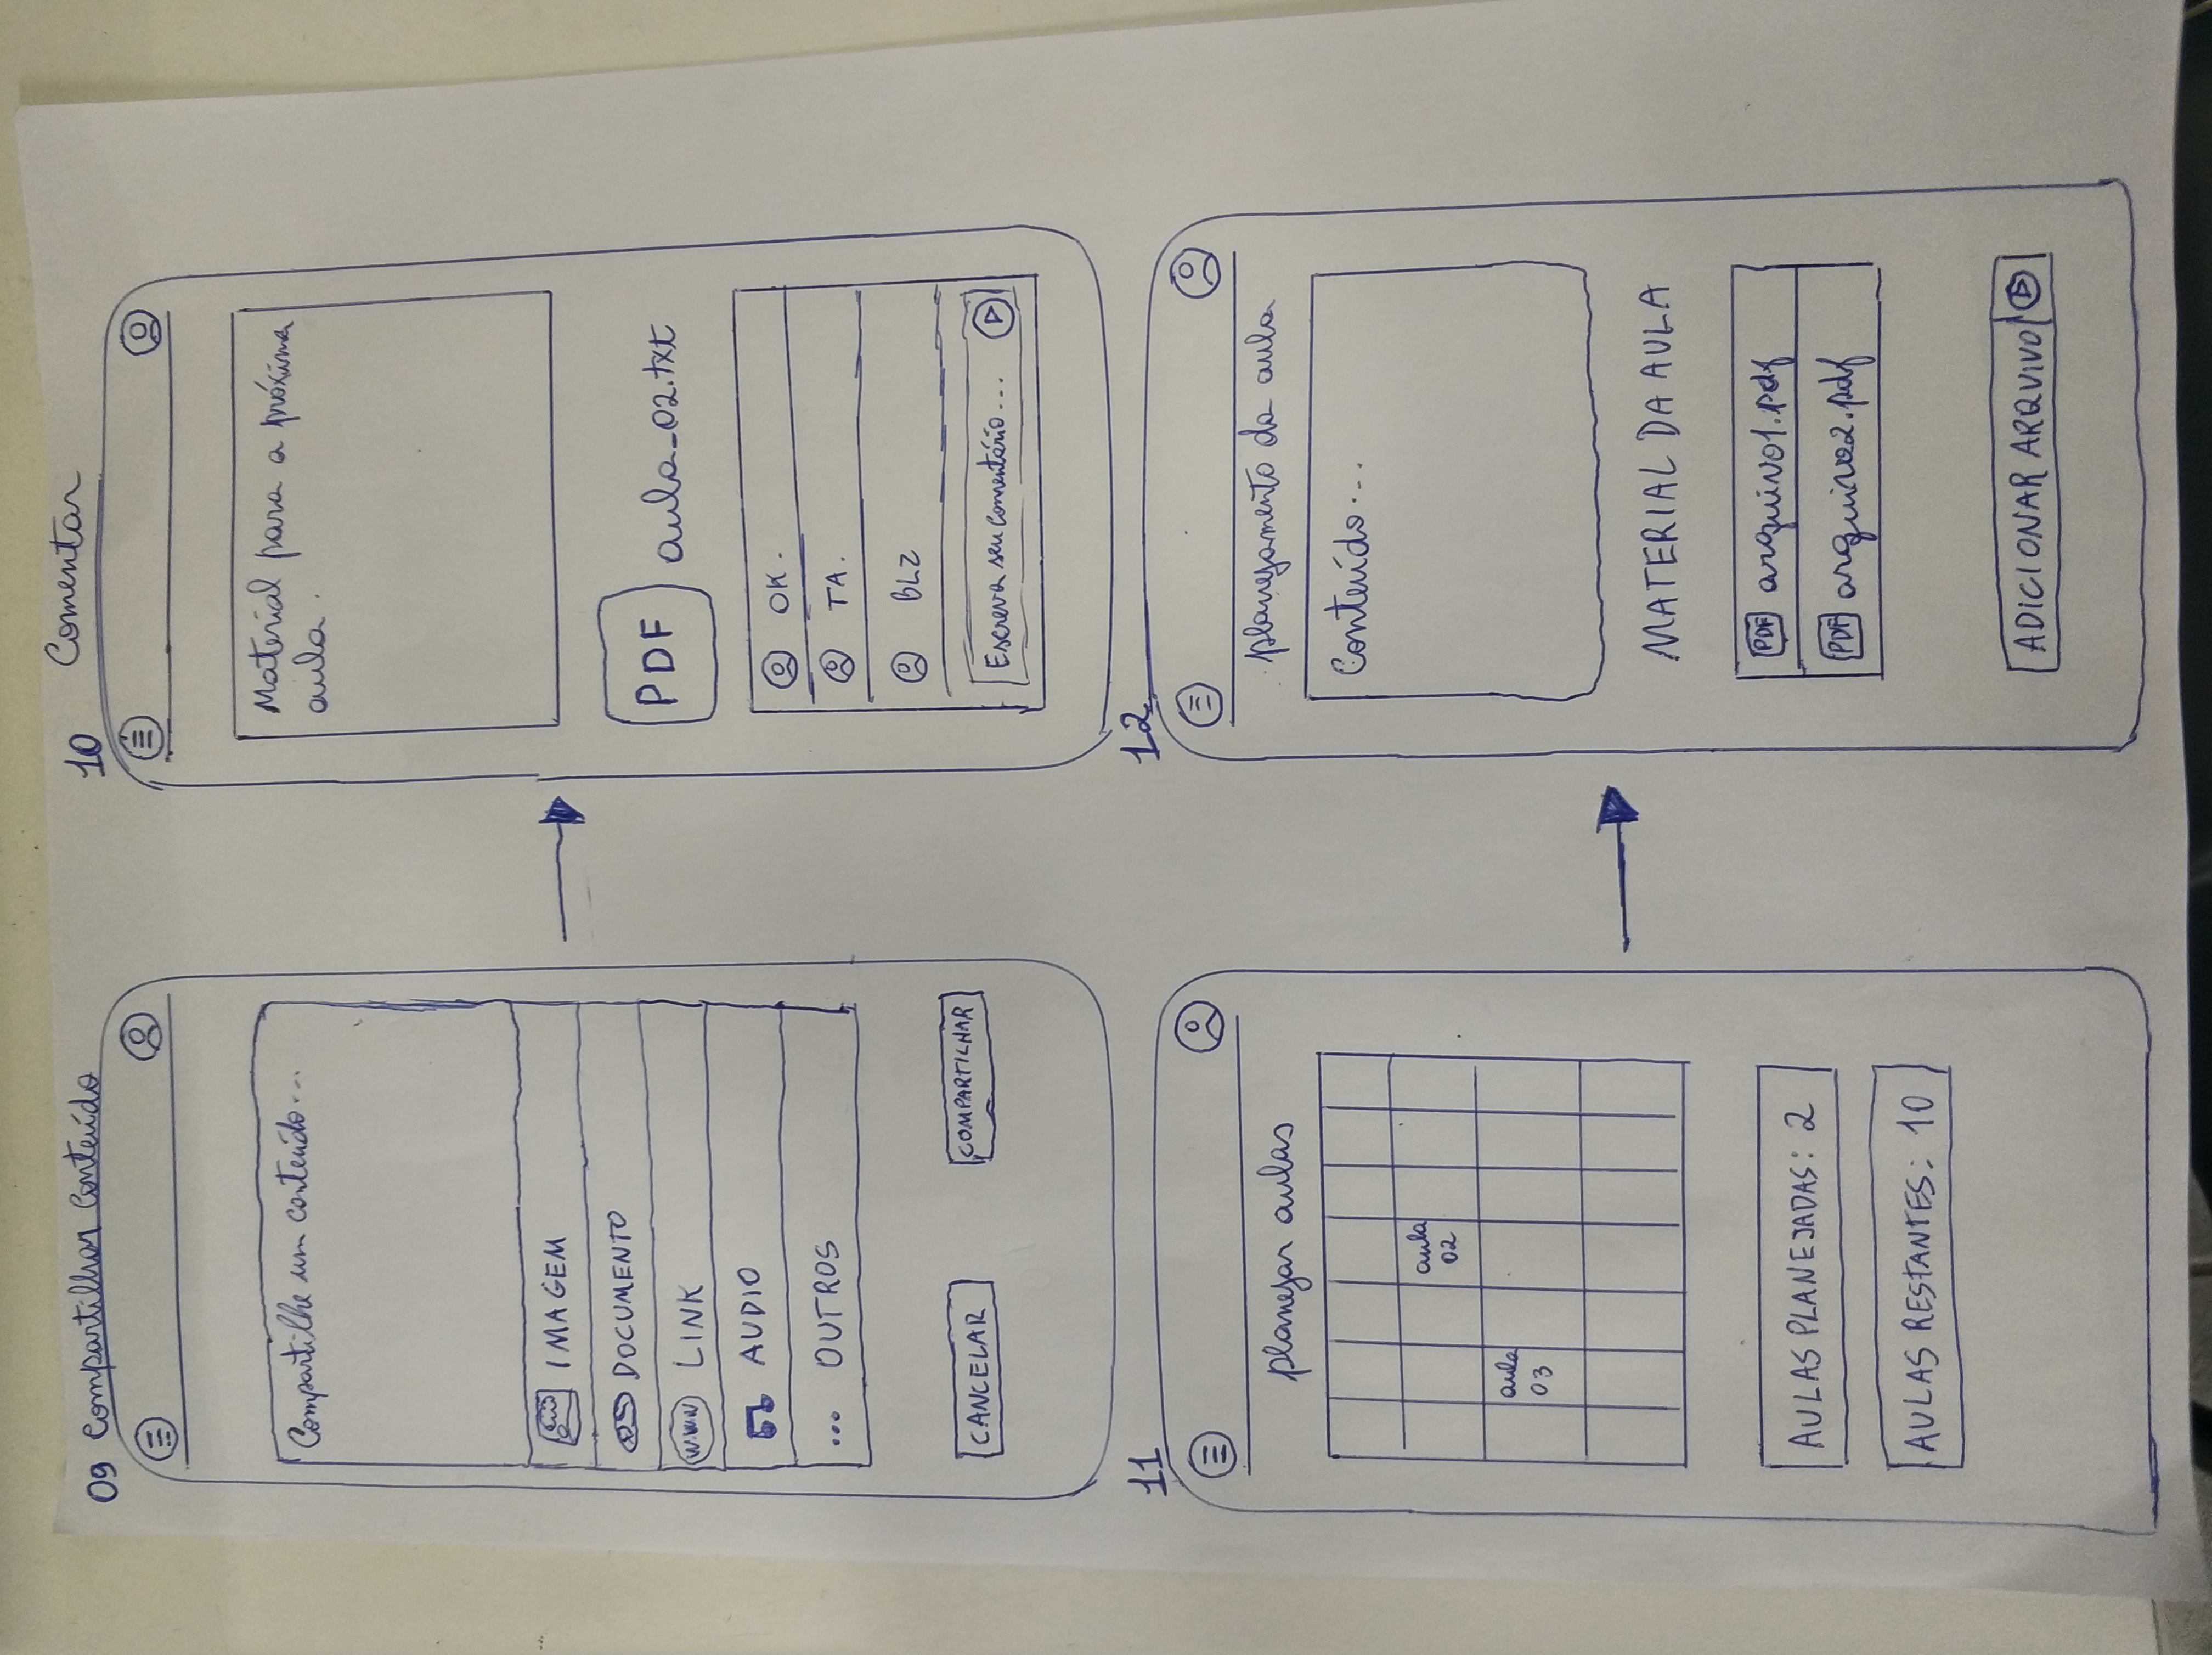 09 Compartilhar Conteúdo
Compartilhe um conteúdo...
IMAGEM
DOCUMENTO
WWW LINK
AUDIO
... OUTROS
CANCELAR
COMPARTILHAR
10 Comentar
Material para a próxima
aula.
PDF aula_02.txt
OK.
TA.
BLZ
Escreva seu comentário...
11
planejar aulas
aula
02
aula
03
AULAS PLANEJADAS: 2
AULAS RESTANTES: 10
12
planejamento da aula
Conteúdo...
MATERIAL DA AULA
PDF arquivo1.pdf
PDF arquivo2.pdf
ADICIONAR ARQUIVO